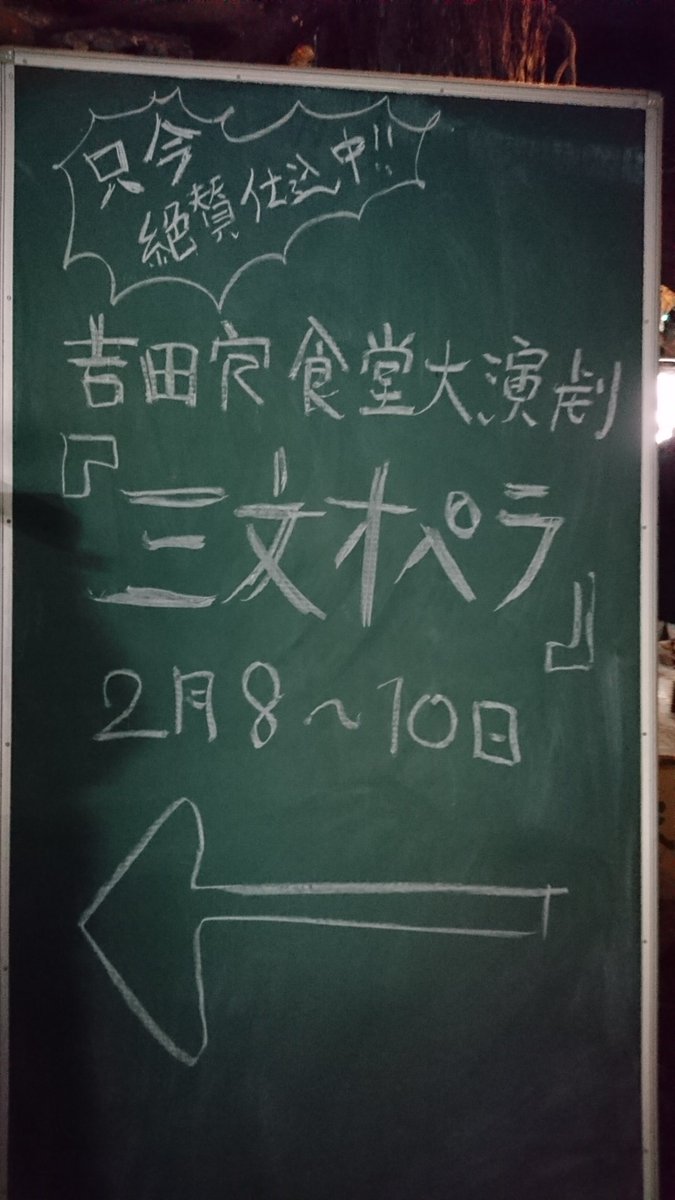 只今
絶賛仕込中!!
吉田寮食堂大演劇
『三文オペラ』
2月8〜10日